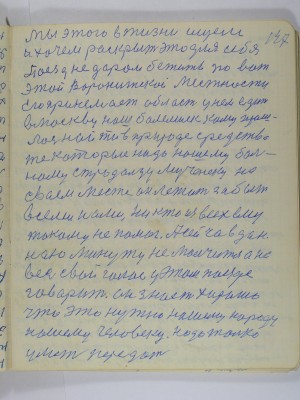 147
Мы этого в жизни ищем
и хочем раскрыть это для себя,
Поезд не даром бежить по вот
этой Воронижской местности
Спренимает область у нем едит
в москву наш больших хому
ноя найти в природе средство
те которые надо нашему бол-
ному страдающему человеку на
своем месте он лежит забыт
всеми нами, никто из всех ему
такому не помог. А сейчас в дан
ную минуту не молчит а на
век свой голос у этом поезде
говарит. он знает хорошо
что это нужно нашему народу
нашему человеку. надо только
умет передат